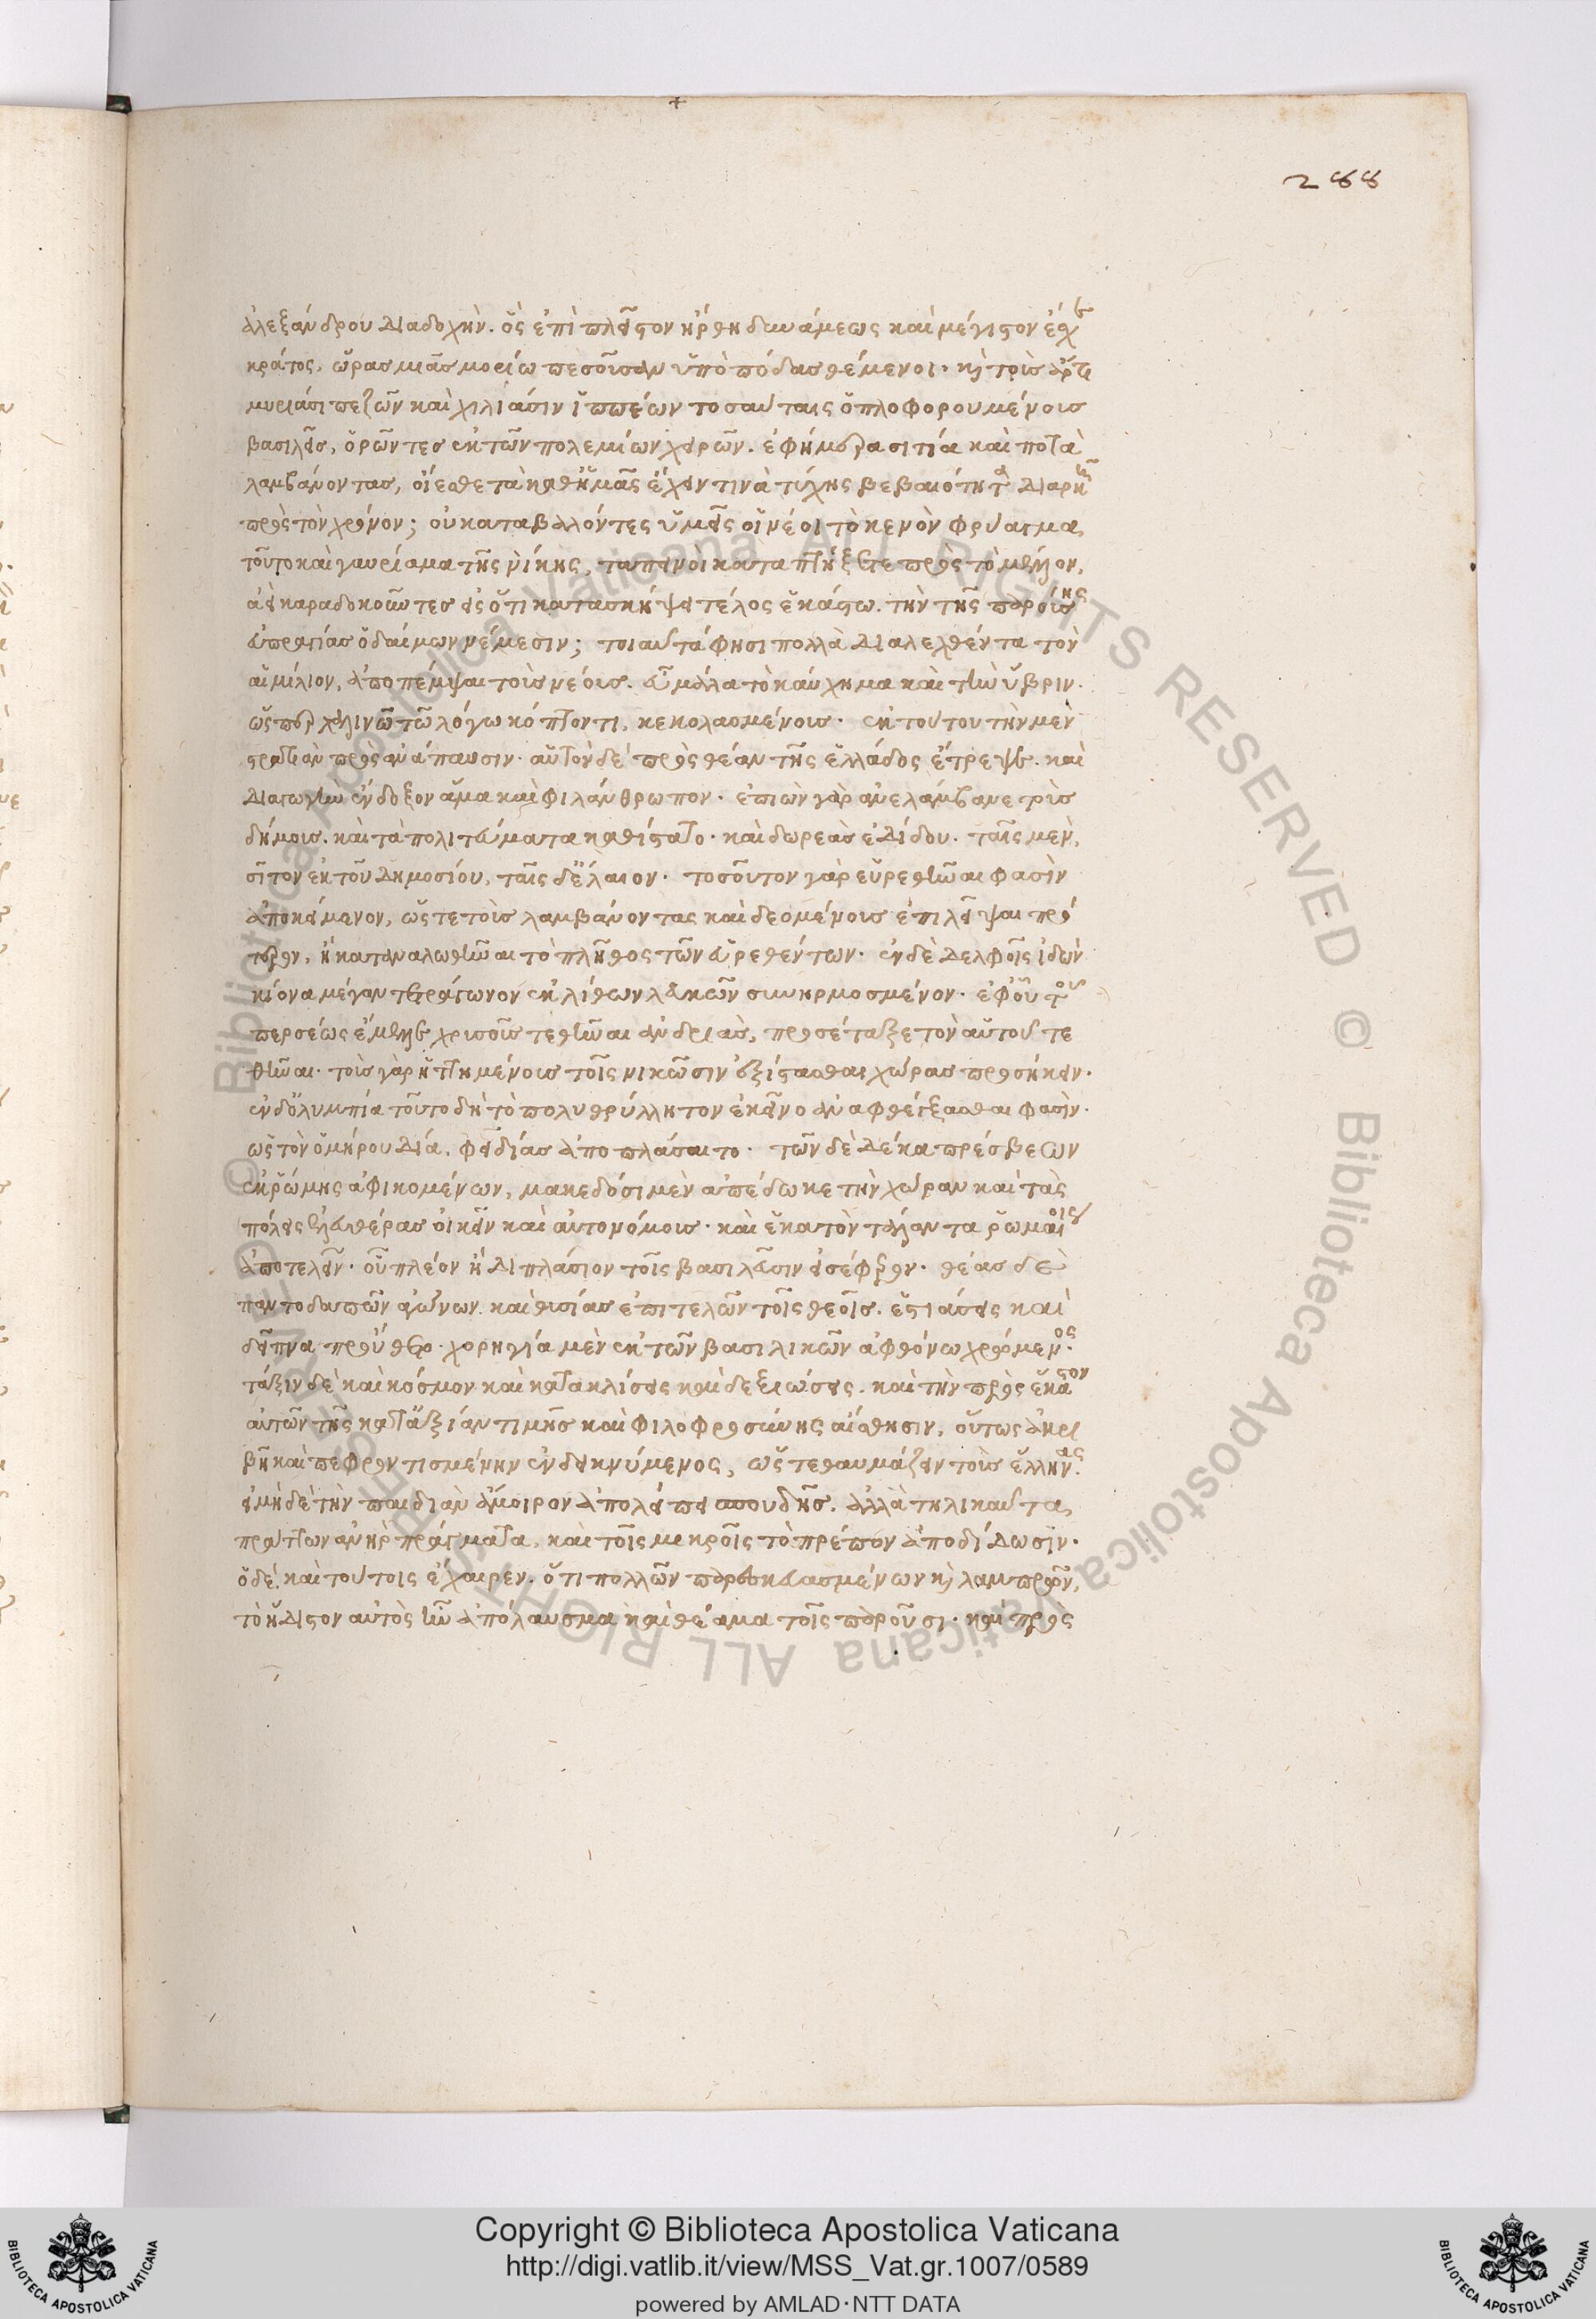 288
ἀλεξάνδρου διαδοχὴν. ὃς ἐπὶ πλεῖστον ἤρθη δυνάμεως καὶ μέγιστον ἔσχε
κράτος, ὥρας μιᾶς μορίω πεσοῦσαν ὑπὸ πόδας θέμενοι· καὶ τοὺς ἄρτι
μυριάσι πεζῶν καὶ χιλιάσιν ἱππέων τοσαύταις ὁπλοφορουμένους
βασιλεῖς, ὁρῶντες ἐκ τῶν πολεμίων χειρῶν. ἐφήμερα σιτία καὶ ποτὰ
λαμβάνοντας, οἴεσθε τὰ καθ' ἡμᾶς ἔχειν τινὰ τύχης βεβαιότητα διαρκῆ
πρὸς τὸν χρόνον; οὐ καταβαλόντες ὑμεῖς οἱ νέοι τὸ κενὸν φρύαγμα
τοῦτο καὶ γαυρίαμα τῆς νίκης, ταπεινοὶ καταπτήξετε πρὸς τὸ μέλλον,
ἀεὶ καραδοκοῦντες εἰς ὅτι κατασκήψει τέλος ἑκάστω. τὴν τῆς παρούσης
εὐπραγίας ὁ δαίμων νέμεσιν; τοιαῦτά φησι πολλὰ διαλεχθέντα τὸν
αἰμίλιον, ἀποπέμψαι τοὺς νέους. εὖ μάλα τὸ καύχημα καὶ τὴν ὕβριν.
ὥσπερ χαλινῶ τῶ λόγω κόπτοντι, κεκολασμένους. ἐκ τούτου τὴν μὲν
στρατιὰν πρὸς ἀνάπαυσιν. αὑτὸν δὲ πρὸς θέαν τῆς ἑλλάδος ἔτρεψε. καὶ
διαγωγὴν ἔνδοξον ἅμα καὶ φιλάνθρωπον. ἐπιὼν γὰρ ἀνελάμβανε τοὺς
δήμους. καὶ τὰ πολιτεύματα καθίστατο. καὶ δωρεὰς ἐδίδου. ταῖς μὲν,
σῖτον ἐκ τοῦ δημοσίου, ταῖς δ' ἔλαιον. τοσοῦτον γὰρ εὑρεθῆναι φασὶν
ἀποκείμενον, ὥστε τοὺς λαμβάνοντας καὶ δεομένους ἐπιλεῖψαι πρό
τερον, ἢ καταναλωθῆναι τὸ πλῆθος τῶν εὑρεθέντων. ἐν δὲ δελφοῖς ἰδὼν
κίονα μέγαν τετράγωνον ἐκ λίθων λευκῶν συνηρμοσμένον. ἐφ' οὗ τοῦ
περσέως ἔμελλε χρυσοῦς τεθῆναι ἀνδριὰς, προσέταξε τὸν αὑτοῦ τε
θῆναι. τοὺς γὰρ ἡττημένους τοῖς νικῶσιν ἐξίστασθαι χώρας προσήκειν.
ἐν δ' ὀλυμπία τοῦτο δὴ τὸ πολυθρύλλητον ἐκεῖνο ἀναφθέγξασθαι φασὶν.
ὡς τὸν ὁμήρου δία, φειδίας ἀποπλάσαιτο. τῶν δὲ δέκα πρέσβεων
ἐκ ῥώμης ἀφικομένων, μακεδόσι μὲν ἀπέδωκε τὴν χώραν καὶ τὰς
πόλεις ἐλευθέρας οἰκεῖν καὶ αὐτονόμους. καὶ ἑκατὸν τάλαντα ῥωμαίοις
ἀποτελεῖν. οὗ πλέον ἢ διπλάσιον τοῖς βασιλεῦσιν εἰσέφερον. θέας δὲ
παντοδαπῶν ἀγώνων. καὶ θυσίας ἐπιτελῶν τοῖς θεοῖς. ἑστιάσεις καὶ
δεῖπνα προὔθετο. χορηγία μὲν ἐκ τῶν βασιλικῶν ἀφθόνω χρώμενος.
τάξιν δὲ καὶ κόσμον καὶ κατακλίσεις καὶ δεξιώσεις. καὶ τὴν πρὸς ἕκαστον
αὐτῶν τῆς κατ' ἀξίαν τιμῆς καὶ φιλοφροσύνης αἴσθησιν, οὕτως ἀκρι
βῆ καὶ πεφροντισμένην ἐνδεικνύμενος, ὥστε θαυμάζειν τοὺς ἕλληνας.
εἰ μὴ δὲ τὴν παιδιὰν ἄμοιρον ἀπολείπει σπουδῆς. ἀλλὰ τηλικαῦτα
πράττων ἀνὴρ πράγματα, καὶ τοῖς μικροῖς τὸ πρέπον ἀποδίδωσιν.
ὁ δὲ, καὶ τούτοις ἔχαιρεν. ὅτι πολλῶν παρεσκευασμένων καὶ λαμπρῶν,
τὸ ἥδιστον αὐτὸς ἦν ἀπόλαυσμα καὶ θέαμα τοῖς παροῦσι. καὶ πρὸς
© Biblioteca Apostolica Vaticana ALL RIGHTS RESERVED © Biblioteca Apostolica Vaticana ALL RIGHTS RESERVED
Copyright © Biblioteca Apostolica Vaticana
http://digi.vatlib.it/view/MSS_Vat.gr.1007/0589
powered by AMLAD·NTT DATA
BIBLIOTECA APOSTOLICA VATICANA
BIBLIOTECA APOSTOLICA VATICANA